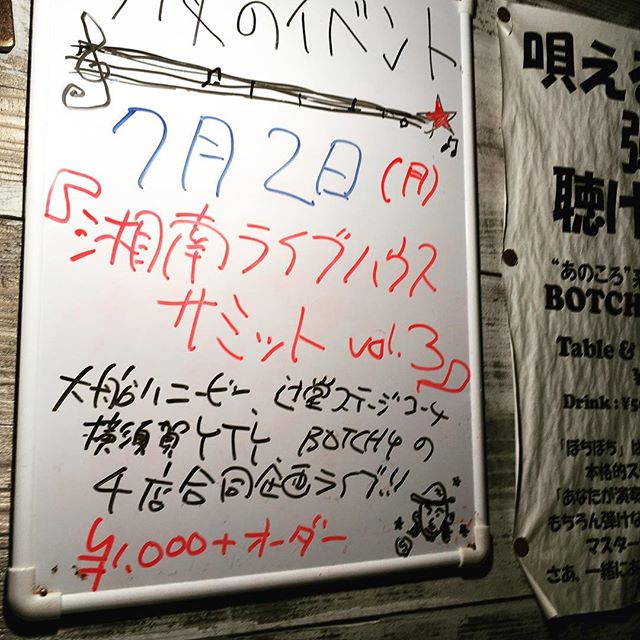 のイベント
7月2日(月)
『湘南ライブハウス
サミット vol.3』
大船ハニービー、辻堂ステージコーチ
横須賀ヤンヤ、BOTCHYの
4店合同企画ライブ!!
¥1,000+オーダー
唄え
聴け
"あのころ"
BOTCH
Table &
Drink:¥5
「ぼちぼち」は
本格的ス
「あなたが演
もちろん弾け
マスター
さあ、一緒に